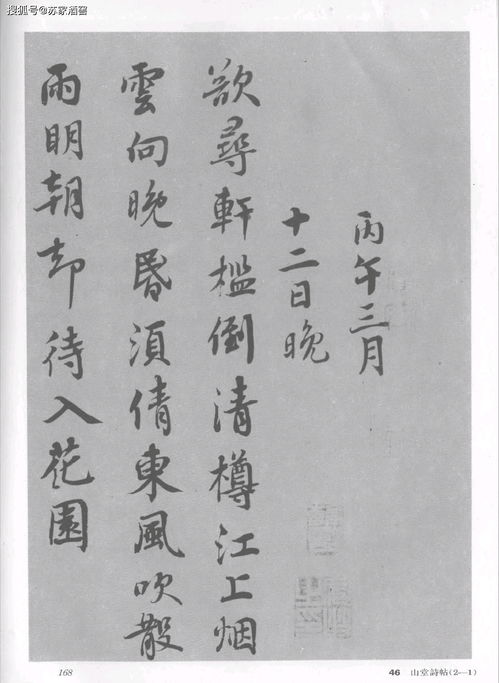 搜狐号@苏家酒窖
丙午三月
十二日晚
欲尋軒檻倒清樽江上烟
雲向晚昏須倩東風吹散
雨明朝却待入花園
168
46 山堂詩帖(2—1)